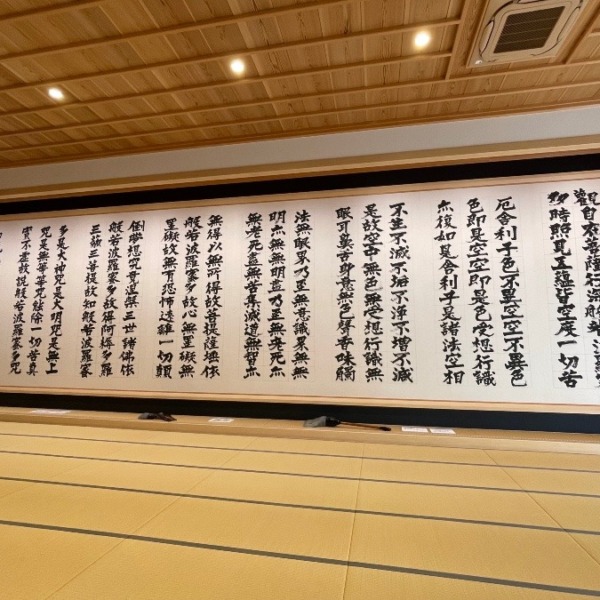 觀自在菩薩行深般若波羅
多時照見五蘊皆空度一切苦
厄舍利子色不異空空不異色
色即是空空即是色受想行識
亦復如是舍利子是諸法空相
不生不滅不垢不淨不增不減
是故空中無色無受想行識無
眼耳鼻舌身意無色聲香味觸
法無眼界乃至無意識界無無
明亦無無明盡乃至無老死亦
無老死盡無苦集滅道無智亦
無得以無所得故菩提薩埵依
般若波羅蜜多故心無罣礙無
罣礙故無有恐怖遠離一切顛
倒夢想究竟涅槃三世諸佛依
般若波羅蜜多故得阿耨多羅
三藐三菩提故知般若波羅蜜
多是大神咒是大明咒是無上
咒是無等等咒能除一切苦真
實不虛故說般若波羅蜜多咒